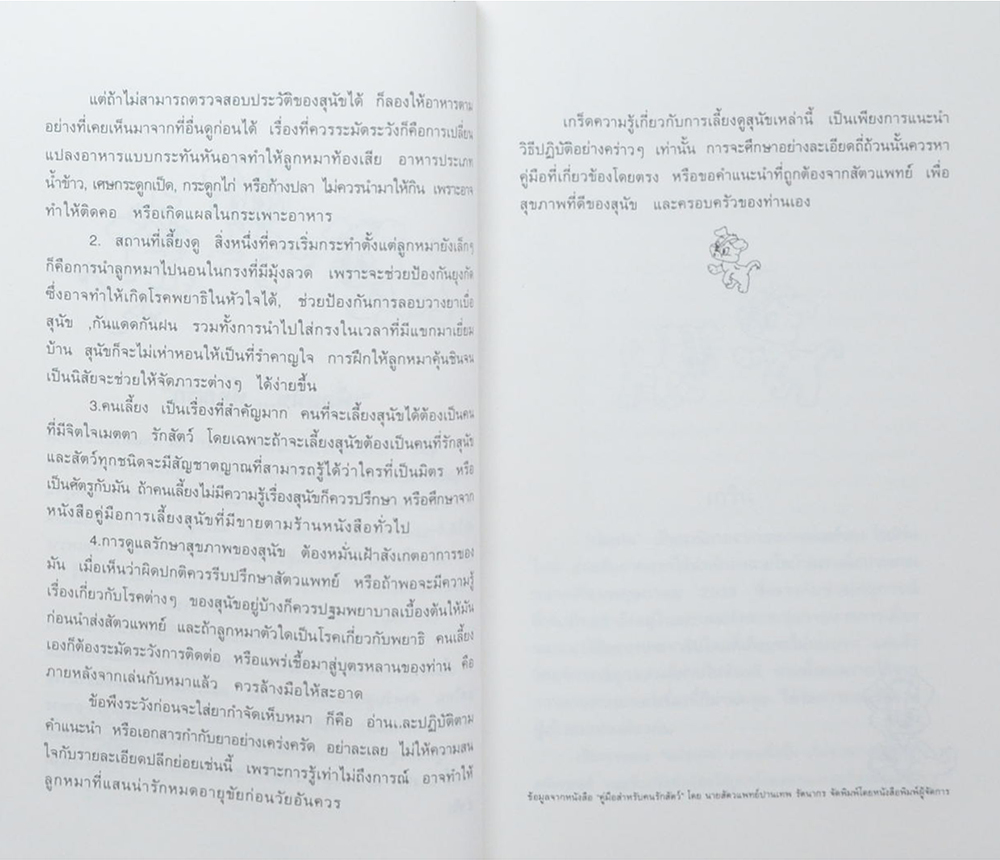 แต่ถ้าไม่สามารถตรวจสอบประวัติของสุนัขได้ ก็ลองให้อาหารตาม
อย่างที่เคยเห็นมาจากที่อื่นดูก่อนได้ เรื่องที่ควรระมัดระวังก็คือการเปลี่ยน
แปลงอาหารแบบกระทันหันอาจทำให้ลูกหมาท้องเสีย อาหารประเภท
น้ำข้าว, เศษกระดูกเป็ด, กระดูกไก่ หรือก้างปลา ไม่ควรนำมาให้กิน เพราะอาจ
ทำให้ติดคอ หรือเกิดแผลในกระเพาะอาหาร
2. สถานที่เลี้ยงดู สิ่งหนึ่งที่ควรเริ่มกระทำตั้งแต่ลูกหมายังเล็กๆ
ก็คือการนำลูกหมาไปนอนในกรงที่มีมุ้งลวด เพราะจะช่วยป้องกันยุงกัด
ซึ่งอาจทำให้เกิดโรคพยาธิในหัวใจได้, ช่วยป้องกันการลอบวางยาเบื่อ
สุนัข ,กันแดดกันฝน รวมทั้งการนำไปใส่กรงในเวลาที่มีแขกมาเยี่ยม
บ้าน สุนัขก็จะไม่เห่าหอนให้เป็นที่รำคาญใจ การฝึกให้ลูกหมาคุ้นชินจน
เป็นนิสัยจะช่วยให้จัดภาระต่างๆ ได้ง่ายขึ้น
3.คนเลี้ยง เป็นเรื่องที่สำคัญมาก คนที่จะเลี้ยงสุนัขได้ต้องเป็นคน
ที่มีจิตใจเมตตา รักสัตว์ โดยเฉพาะถ้าจะเลี้ยงสุนัขต้องเป็นคนที่รักสุนัข
และสัตว์ทุกชนิดจะมีสัญชาตญาณที่สามารถรู้ได้ว่าใครที่เป็นมิตร หรือ
เป็นศัตรูกับมัน ถ้าคนเลี้ยงไม่มีความรู้เรื่องสุนัขก็ควรปรึกษา หรือศึกษาจาก
หนังสือคู่มือการเลี้ยงสุนัขที่มีขายตามร้านหนังสือทั่วไป
4.การดูแลรักษาสุขภาพของสุนัข ต้องหมั่นเฝ้าสังเกตอาการของ
มัน เมื่อเห็นว่าผิดปกติควรรีบปรึกษาสัตวแพทย์ หรือถ้าพอจะมีความรู้
เรื่องเกี่ยวกับโรคต่างๆ ของสุนัขอยู่บ้างก็ควรปฐมพยาบาลเบื้องต้นให้มัน
ก่อนนำส่งสัตวแพทย์ และถ้าลูกหมาตัวใดเป็นโรคเกี่ยวกับพยาธิ คนเลี้ยง
เองก็ต้องระมัดระวังการติดต่อ หรือแพร่เชื้อมาสู่บุตรหลานของท่าน คือ
ภายหลังจากเล่นกับหมาแล้ว ควรล้างมือให้สะอาด
ข้อพึงระวังก่อนจะใส่ยากำจัดเห็บหมา ก็คือ อ่านและปฏิบัติตาม
คำแนะนำ หรือเอกสารกำกับยาอย่างเคร่งครัด อย่าละเลย ไม่ให้ความสน
ใจกับรายละเอียดปลีกย่อยเช่นนี้ เพราะการรู้เท่าไม่ถึงการณ์ อาจทำให้
ลูกหมาที่แสนน่ารักหมดอายุขัยก่อนวัยอันควร
เกร็ดความรู้เกี่ยวกับการเลี้ยงดูสุนัขเหล่านี้ เป็นเพียงการแนะนำ
วิธีปฏิบัติอย่างคร่าวๆ เท่านั้น การจะศึกษาอย่างละเอียดถี่ถ้วนนั้นควรหา
คู่มือที่เกี่ยวข้องโดยตรง หรือขอคำแนะนำที่ถูกต้องจากสัตวแพทย์ เพื่อ
สุขภาพที่ดีของสุนัข และครอบครัวของท่านเอง
ข้อมูลจากหนังสือ "คู่มือสำหรับคนรักสัตว์" โดย นายสัตวแพทย์ปานเทพ รัตนากร จัดพิมพ์โดยหนังสือพิมพ์ผู้จัดการ